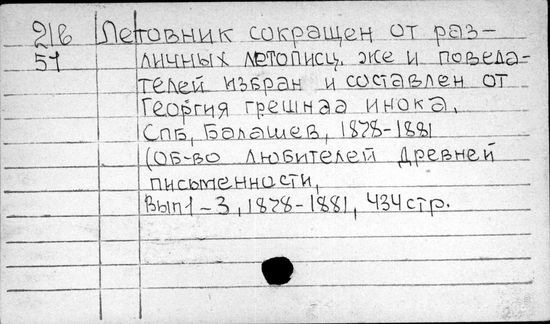 21в Летовник сокращен от раз-
57 личных летописц. же и поведа-
телей избран и составлен от
Георгия грешнаа инока.
Спб, Балашев, 1878-1881
(Об-во любителей древней
письменности,
Вып 1-3, 1878-1881, 434 стр.